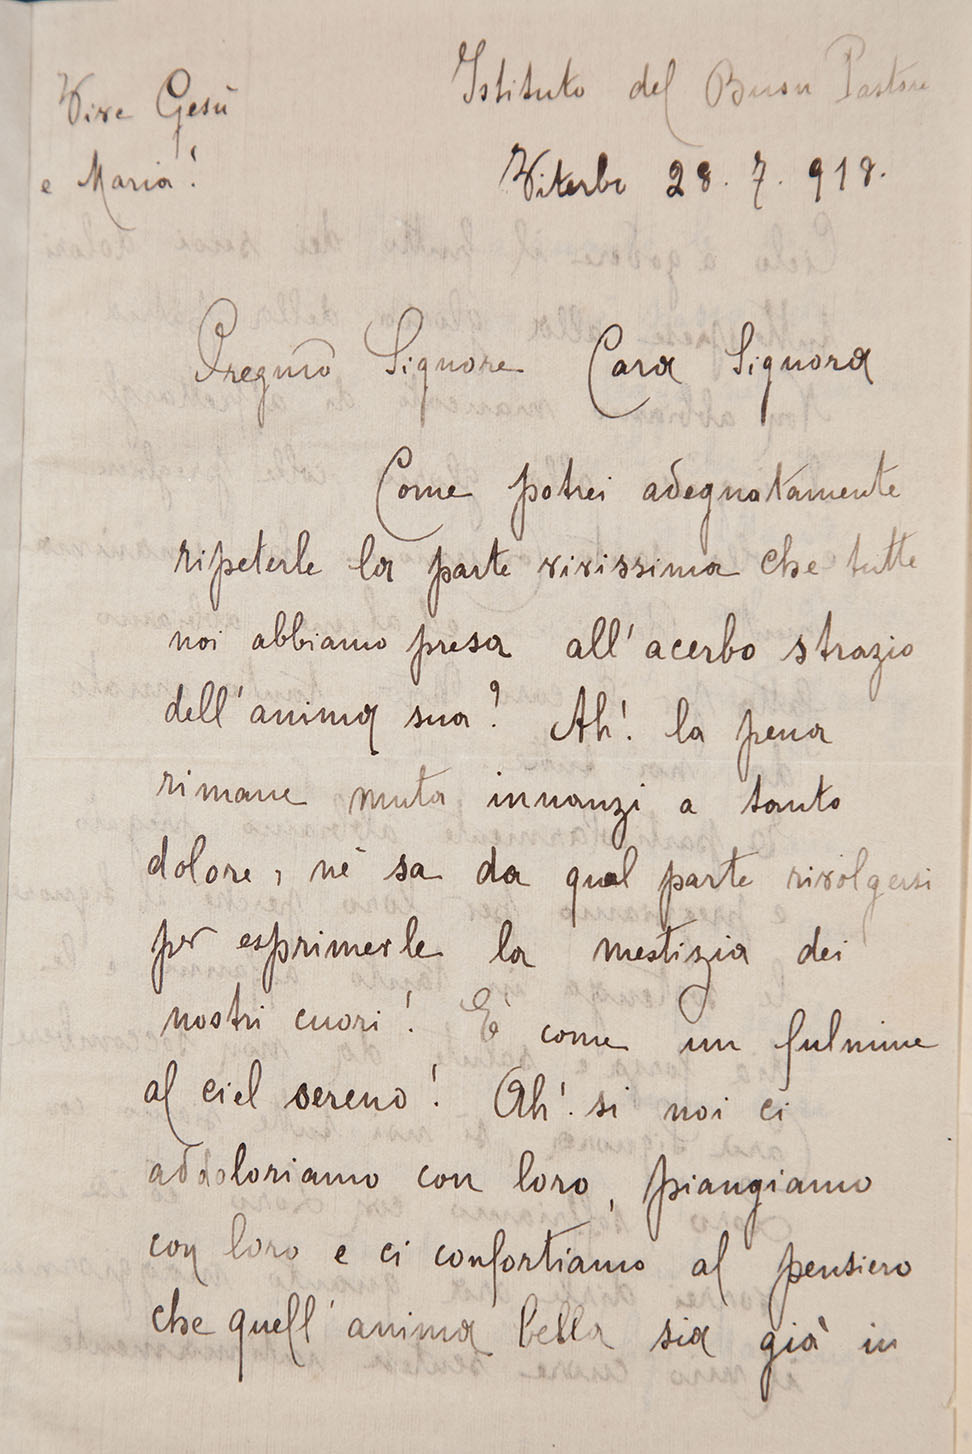 Vive Gesù
e Maria!
Istituto del Buon Pastore
Viterbo 28. 7. 918.
Pregmo Signore Cara Signora
Come potrei adeguatamente
ripeterle la parte vivissima che tutte
noi abbiamo presa all'acerbo strazio
dell'anima sua? Ah! la penna
rimane muta innanzi a tanto
dolore, nè sa da qual parte rivolgersi
per esprimerle la mestizia dei
nostri cuori! È come un fulmine
al ciel sereno! Ah! si noi ci
addoloriamo con loro, piangiamo
con loro e ci confortiamo al pensiero
che quell'anima bella sia già in